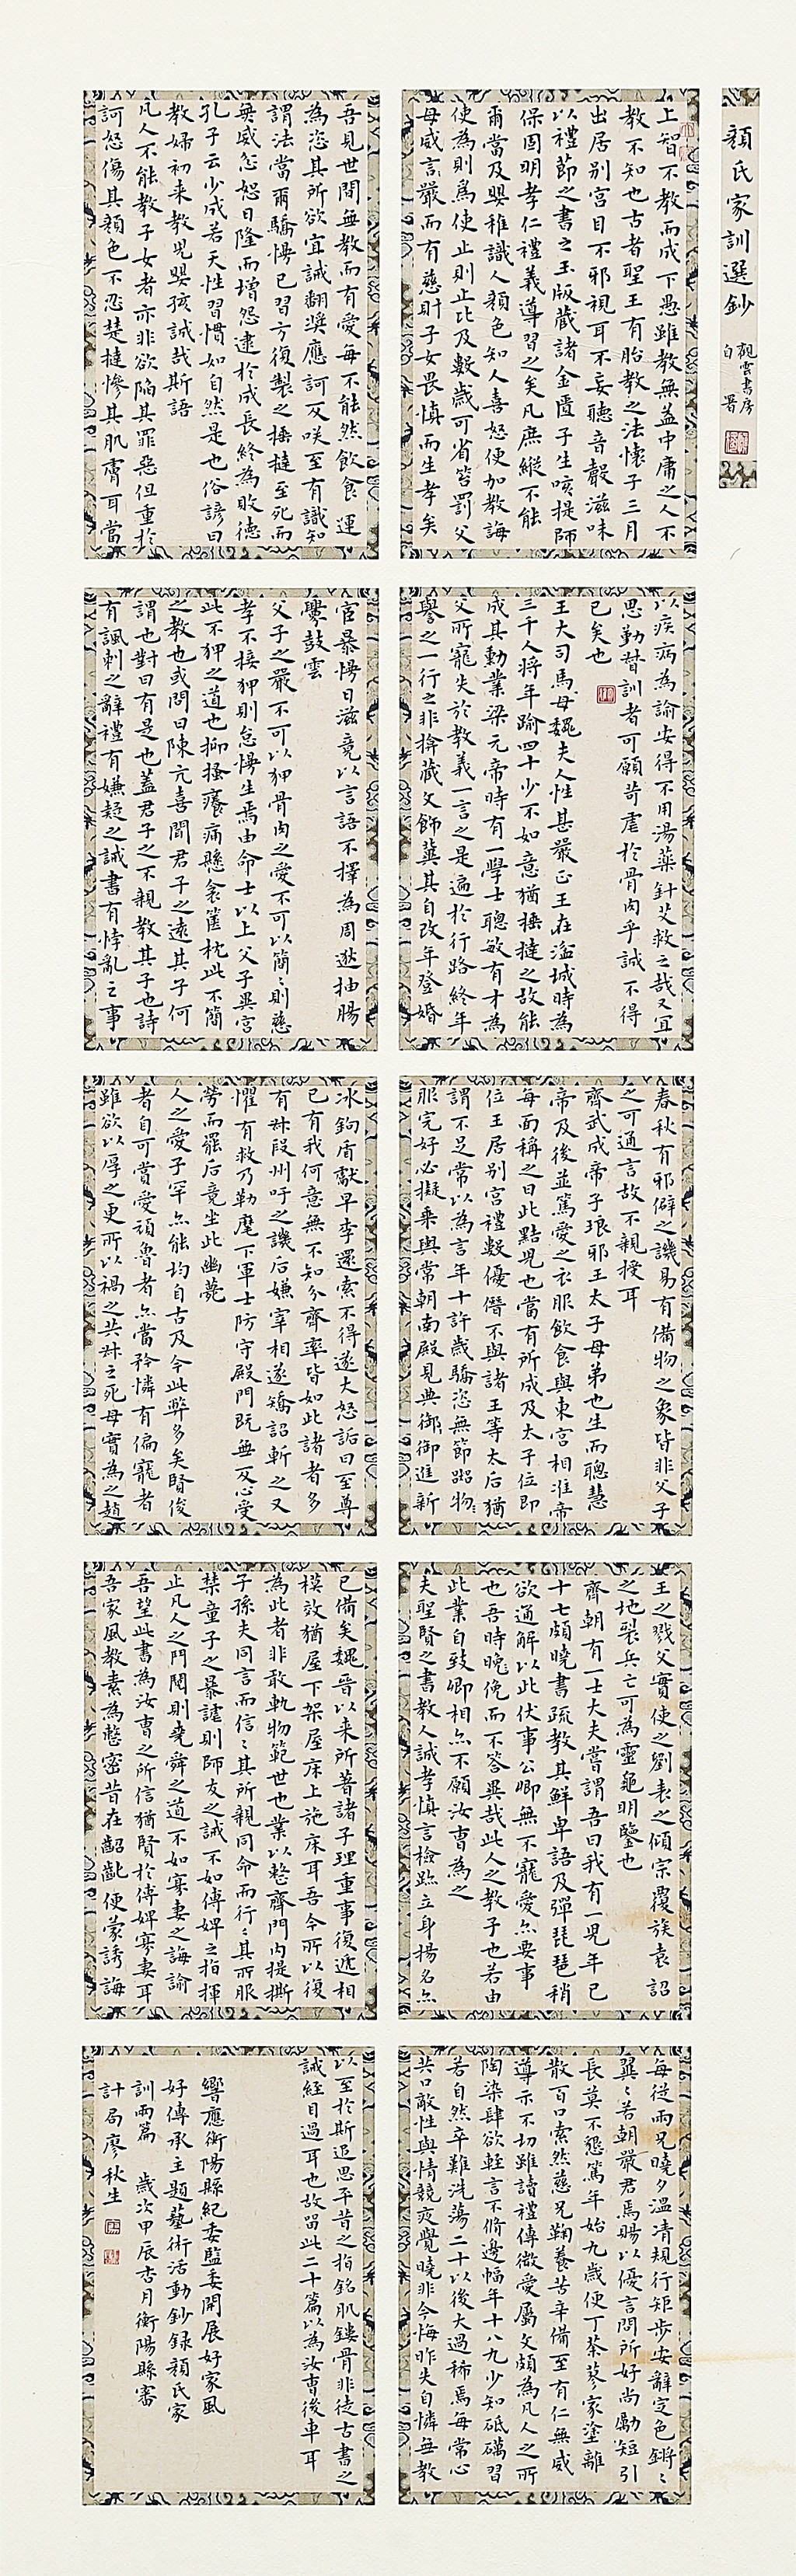 顏氏家訓選鈔
觀雲書房
自署
上智不教而成下愚雖教無益中庸之人不
教不知也古者聖王有胎教之法懷子三月
出居別宮目不邪視耳不妄聽音聲滋味
以禮節之書之玉版藏諸金匱子生咳提師
保固明孝仁禮義導習之矣凡庶縱不能
爾當及嬰稚識人顏色知人喜怒便加教誨
使為則為使止則止比及數歲可省笞罰父
母威嚴而有慈則子女畏慎而生孝矣
吾見世間無教而有愛每不能然飲食運
為恣其所欲宜誡翻獎應訶反咲至有識知
謂法當爾驕慢已習方復製之捶撻至死而
無威忿怒日隆而增怨逮於成長終為敗德
孔子云少成若天性習慣如自然是也俗諺曰
教婦初来教兒嬰孩誠哉斯語
凡人不能教子女者亦非欲陷其罪惡但重於
訶怒傷其顏色不忍楚撻慘其肌膚耳當
以疾病為諭安得不用湯藥針艾救之哉又宜
思勤督訓者可願苛虐於骨肉乎誠不得
已矣也
王大司馬母魏夫人性甚嚴正王在湓城時為
三千人將年踰四十少不如意猶捶撻之故能
成其勳業梁元帝時有一學士聰敏有才為
父所寵失於教義一言之是遍於行路終年
譽之一行之非揜藏文飾冀其自改年登婚
宦暴慢日滋竟以言語不擇為周逖抽腸
釁鼓雲
父子之嚴不可以狎骨肉之愛不可以簡〻則慈
孝不接狎則怠慢生焉由命士以上父子異宮
此不狎之道也抑搔癢痛懸衾篋枕此不簡
之教也或問曰陳亢喜聞君子之遠其子何
謂也對曰有是也蓋君子之不親教其子也詩
有諷刺之辭禮有嫌疑之誡書有悖亂之事
春秋有邪僻之譏易有備物之象皆非父子
之可通言故不親授耳
齊武成帝子琅邪王太子母弟也生而聰慧
帝及後並篤愛之衣服飲食與東宮相准帝
每面稱之曰此黠兒也當有所成及太子位即
位王居別宮禮數優僭不與諸王等太后猶
謂不足常以為言年十許歲驕恣無節器物
服完好必擬乘輿常朝南殿見典御御進新
冰鉤盾獻早李還索不得遂大怒詬曰至尊
已有我何意無不知分齊率皆如此諸者多
有叔段州吁之譏后嫌宰相遂矯詔斬之又
懼有救乃勒麾下軍士防守殿門既無反心受
勞而罷后竟坐此幽薨
人之愛子罕亦能均自古及今此弊多矣賢俊
者自可賞愛頑魯者亦當矜憐有偏寵者
雖欲以厚之更所以禍之共叔之死母實為之趙
王之戮父實使之劉表之傾宗覆族袁詔
之地裂兵亡可為靈龜明鑒也
齊朝有一士大夫嘗謂吾曰我有一兒年已
十七頗曉書疏教其鮮卑語及彈琵琶稍
欲通解以此伏事公卿無不寵愛亦要事
也吾時晚俛而不答異哉此人之教子也若由
此業自致卿相亦不願汝曹為之
夫聖賢之書教人誠孝慎言檢跡立身揚名亦
已備矣魏晉以来所著諸子理重事復遞相
模效猶屋下架屋床上施床耳吾今所以復
為此者非敢軌物範世也業以整齊門內提撕
子孫夫同言而信〻其所親同命而行〻其所服
禁童子之暴謔則師友之誡不如傅婢之指揮
止凡人之鬥鬩則堯舜之道不如寡妻之誨諭
吾望此書為汝曹之所信猶賢於傅婢寡妻耳
吾家風教素為整密昔在齠齔便蒙誘誨
每從兩兄曉夕溫凊規行矩步安辭定色鏘〻
翼〻若朝嚴君焉賜以優言問所好尚勵短引
長莫不懇篤年始九歲便丁荼蓼家塗離
散百口索然慈兄鞠養苦辛備至有仁無威
導示不切雖讀禮傳微愛屬文頗為凡人之所
陶染肆欲輕言不脩邊幅年十八九少知砥礪習
若自然卒難洗蕩二十以後大過稀焉每常心
共口敵性與情競夜覺曉非今悔昨失自憐無教
以至於斯追思平昔之指銘肌鏤骨非徒古書之
誡經目過耳也故留此二十篇以為汝曹後車耳
響應衡陽縣紀委監委開展好家風
好傳承主題藝術活動鈔録顏氏家
訓兩篇 歲次甲辰杏月衡陽縣審
計局廖秋生